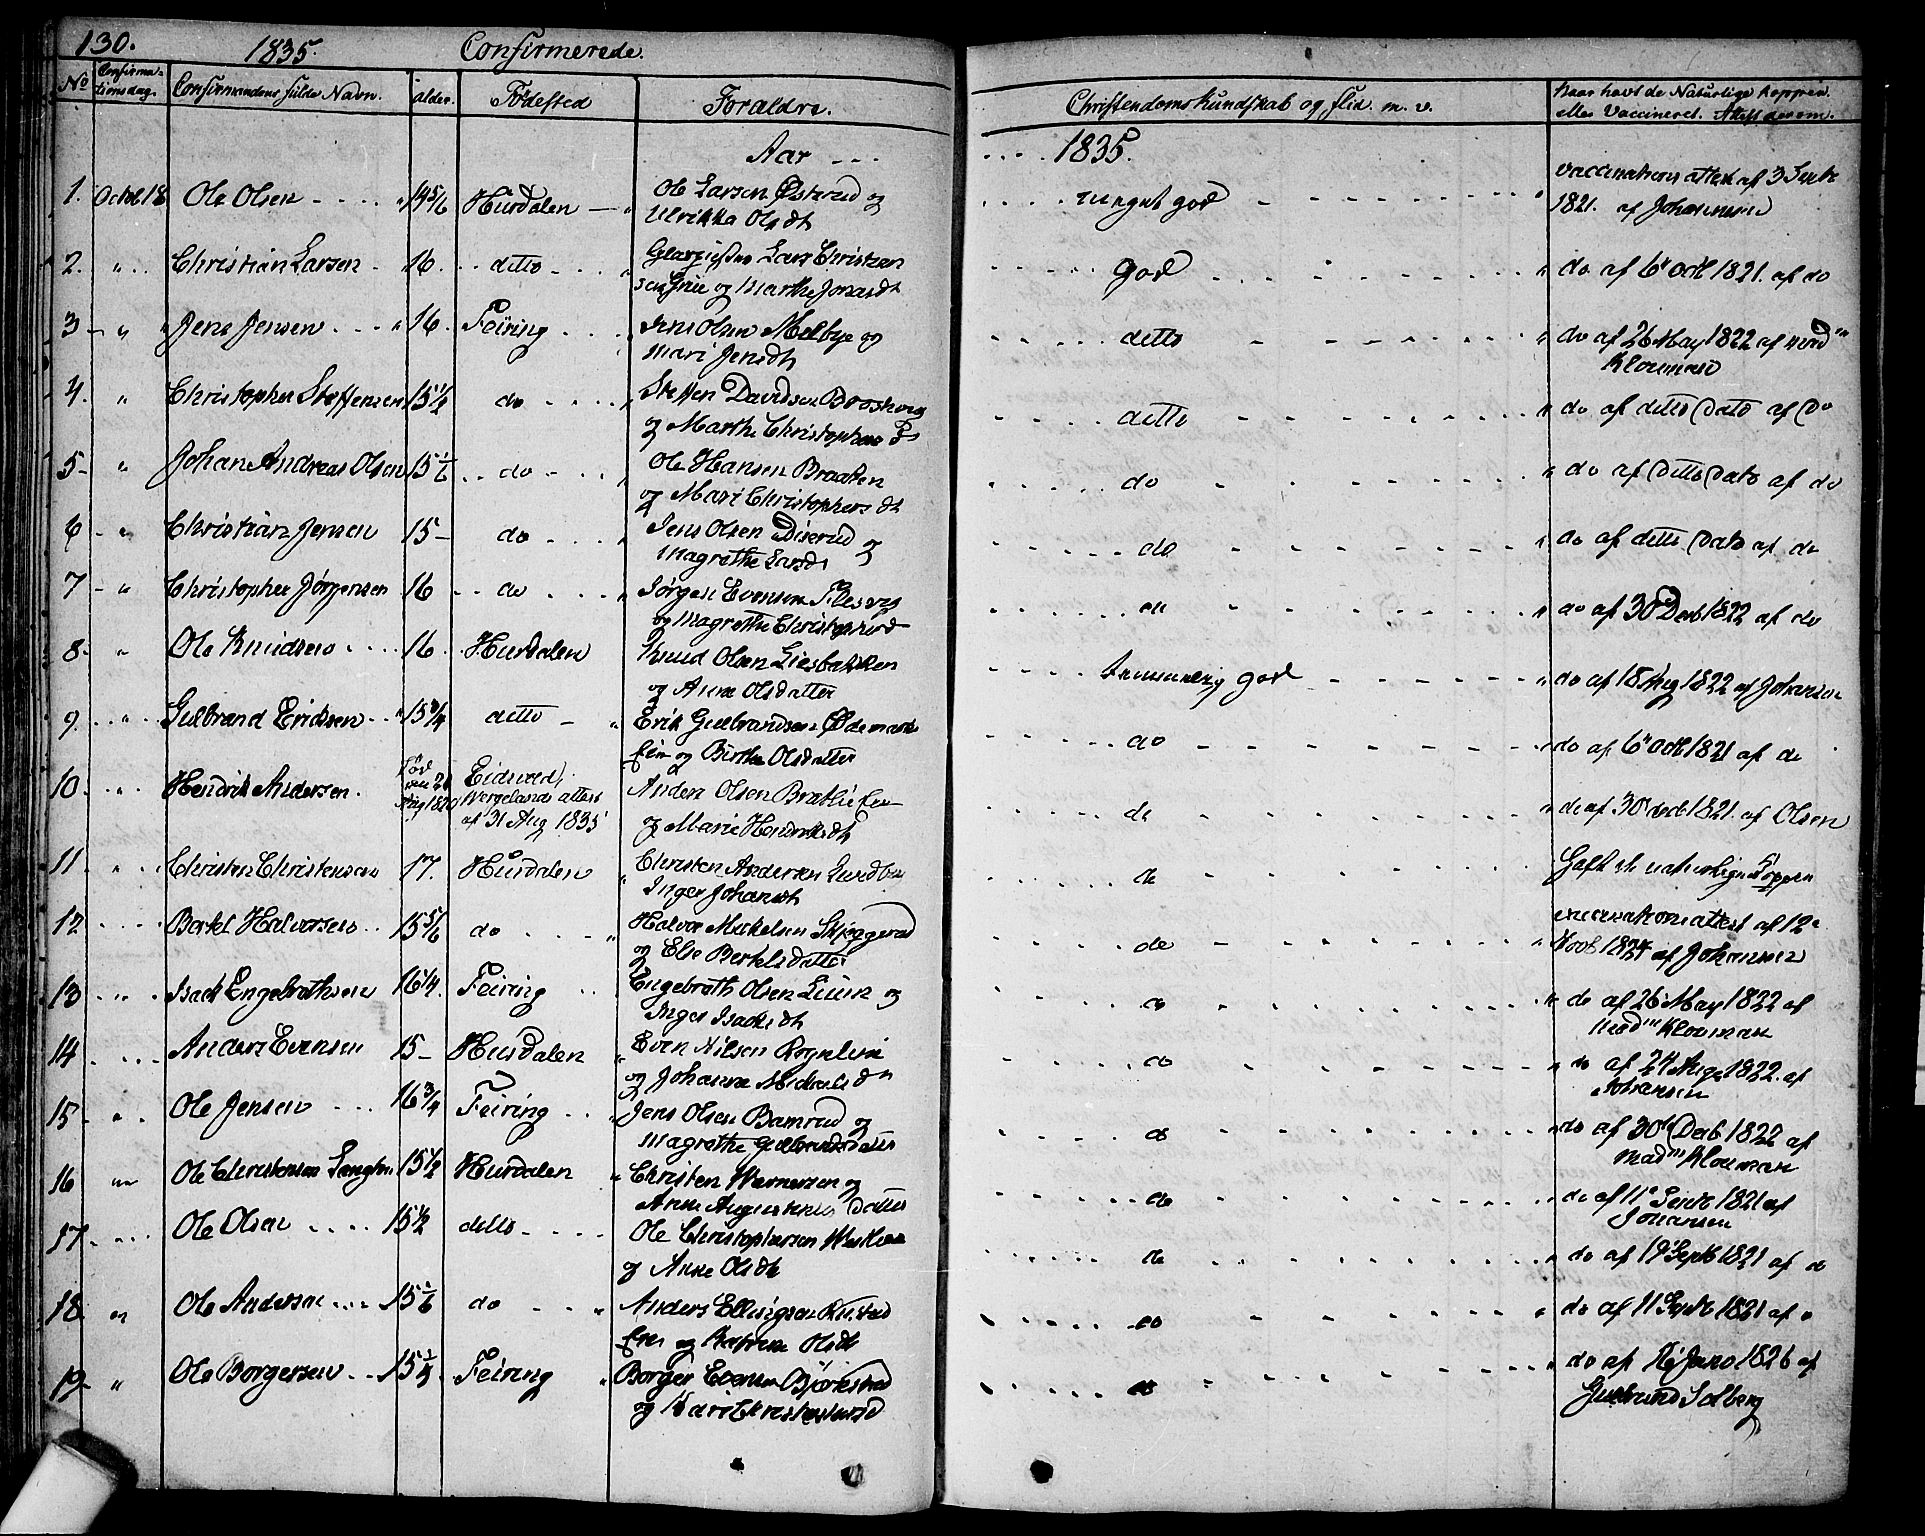 130. 1835. Confirmerede.
No Confirmationsdag. Confirmandens fulde Navn. alder. Fødested Forældre. Christendoms Kundskab og flid m. v. har havt de Naturlige Kopper eller Vaccineret. Attest derom.
Aar --- .... 1835.
1. Octob 18 Ole Olsen 14 5/6 Hurdalen Ole Larsen Østerud og meget god vaccinations attest af 3 Sept
Ulrikka Olsdt 1821. af Johannesen
2. " Christian Larsen 16. ditto Lars Christian god do af 6 oct 1821. af do
og Marthe Jonasdt
3 " Jens Jensen 16. Feiring Jens Olsen Melbye og ditto do af 26 May 1822 af mad
Mari Jensdt Klouman
4. " Christopher Steffensen 15 1/2 do Steffen Davidsen ditto do af ditto Dato af Do
og Marthe Christophers D
5 " Johan Andreas Olsen 15 1/6 do Ole Hansen Braaten do do af Ditto Dato af do
og Mari Christophersdt
6 " Christian Jensen 15 do Jens Olsen Diserud og do do af ditto Dato af do
Magrethe Larsd
7 " Christopher Jørgensen 16 do Jørgen Evensen do do af 30 Decb 1822 af do
og Magrethe Christophersd
8. " Ole Knudsen 16. Hurdalen Knud Olsen Liesbakken temmelig god do af 18 Aug 1822 af Johansen
og Anne Olsdatter
9. " Gulbrand Eriksen 15 3/4 ditto Erik Gulbrandsen Ødemark do do af 6 oct 1821 af do
Eie og Birthe Olsdatter
10 " Hendrik Andersen. Fød Eidsvold, Anders Olsen do do af 30 decb 1821. af Olsen
Aug 1820 Wergelands attest
af 31 Aug 1835 og Marie Hendriksdt
11. " Christen Christensen 17. Hurdalen Christen Andersen do haft de naturlige Kopper
Inger Johansdt
12 Berkel Halvorsen 15 5/6 do Halvor Mickelsen Skjøggerud do vaccinations attest af 12
og Else Berkelsdatter 1824 af Johannesen
13 " Isack Engebrethsen 16 1/4. Feiring Engebreth Olsen og do do af 26 May 1822 af
Inger Isacksdt mad Klouman
14 Anders Evensen 15 Hurdalen Even Nilsen do do af 24 Aug 1822. af
og Johanne Mickelsd Johansen
15 " Ole Jensen 16 3/4 Feiring Jens Olsen Bamrud og do do af 30 Decb 1822 af
Magrethe Gulbrandsdatter mad Klouman
16 Ole Christensen 15 1/2 Hurdalen Christen Wernersen og do do af 11 Septb 1821 af
Anne Augustinus Datter Johansen
17 Ole Olsen 15 1/2 ditto Ole Christophersen do do af 19 Septb 1821 af do
og Anne Olsdt
18. Ole Andersen 15 1/6 do Anders Ellingsen do do af 11 Septb 1821 af
Eie og Olsdt
19 " Ole Borgersen 15 1/4 Feiring Borger Evensen Bjørkerud do do af 16 Janv 1826 af
og Kari Christophersd Gulbrand Solberg